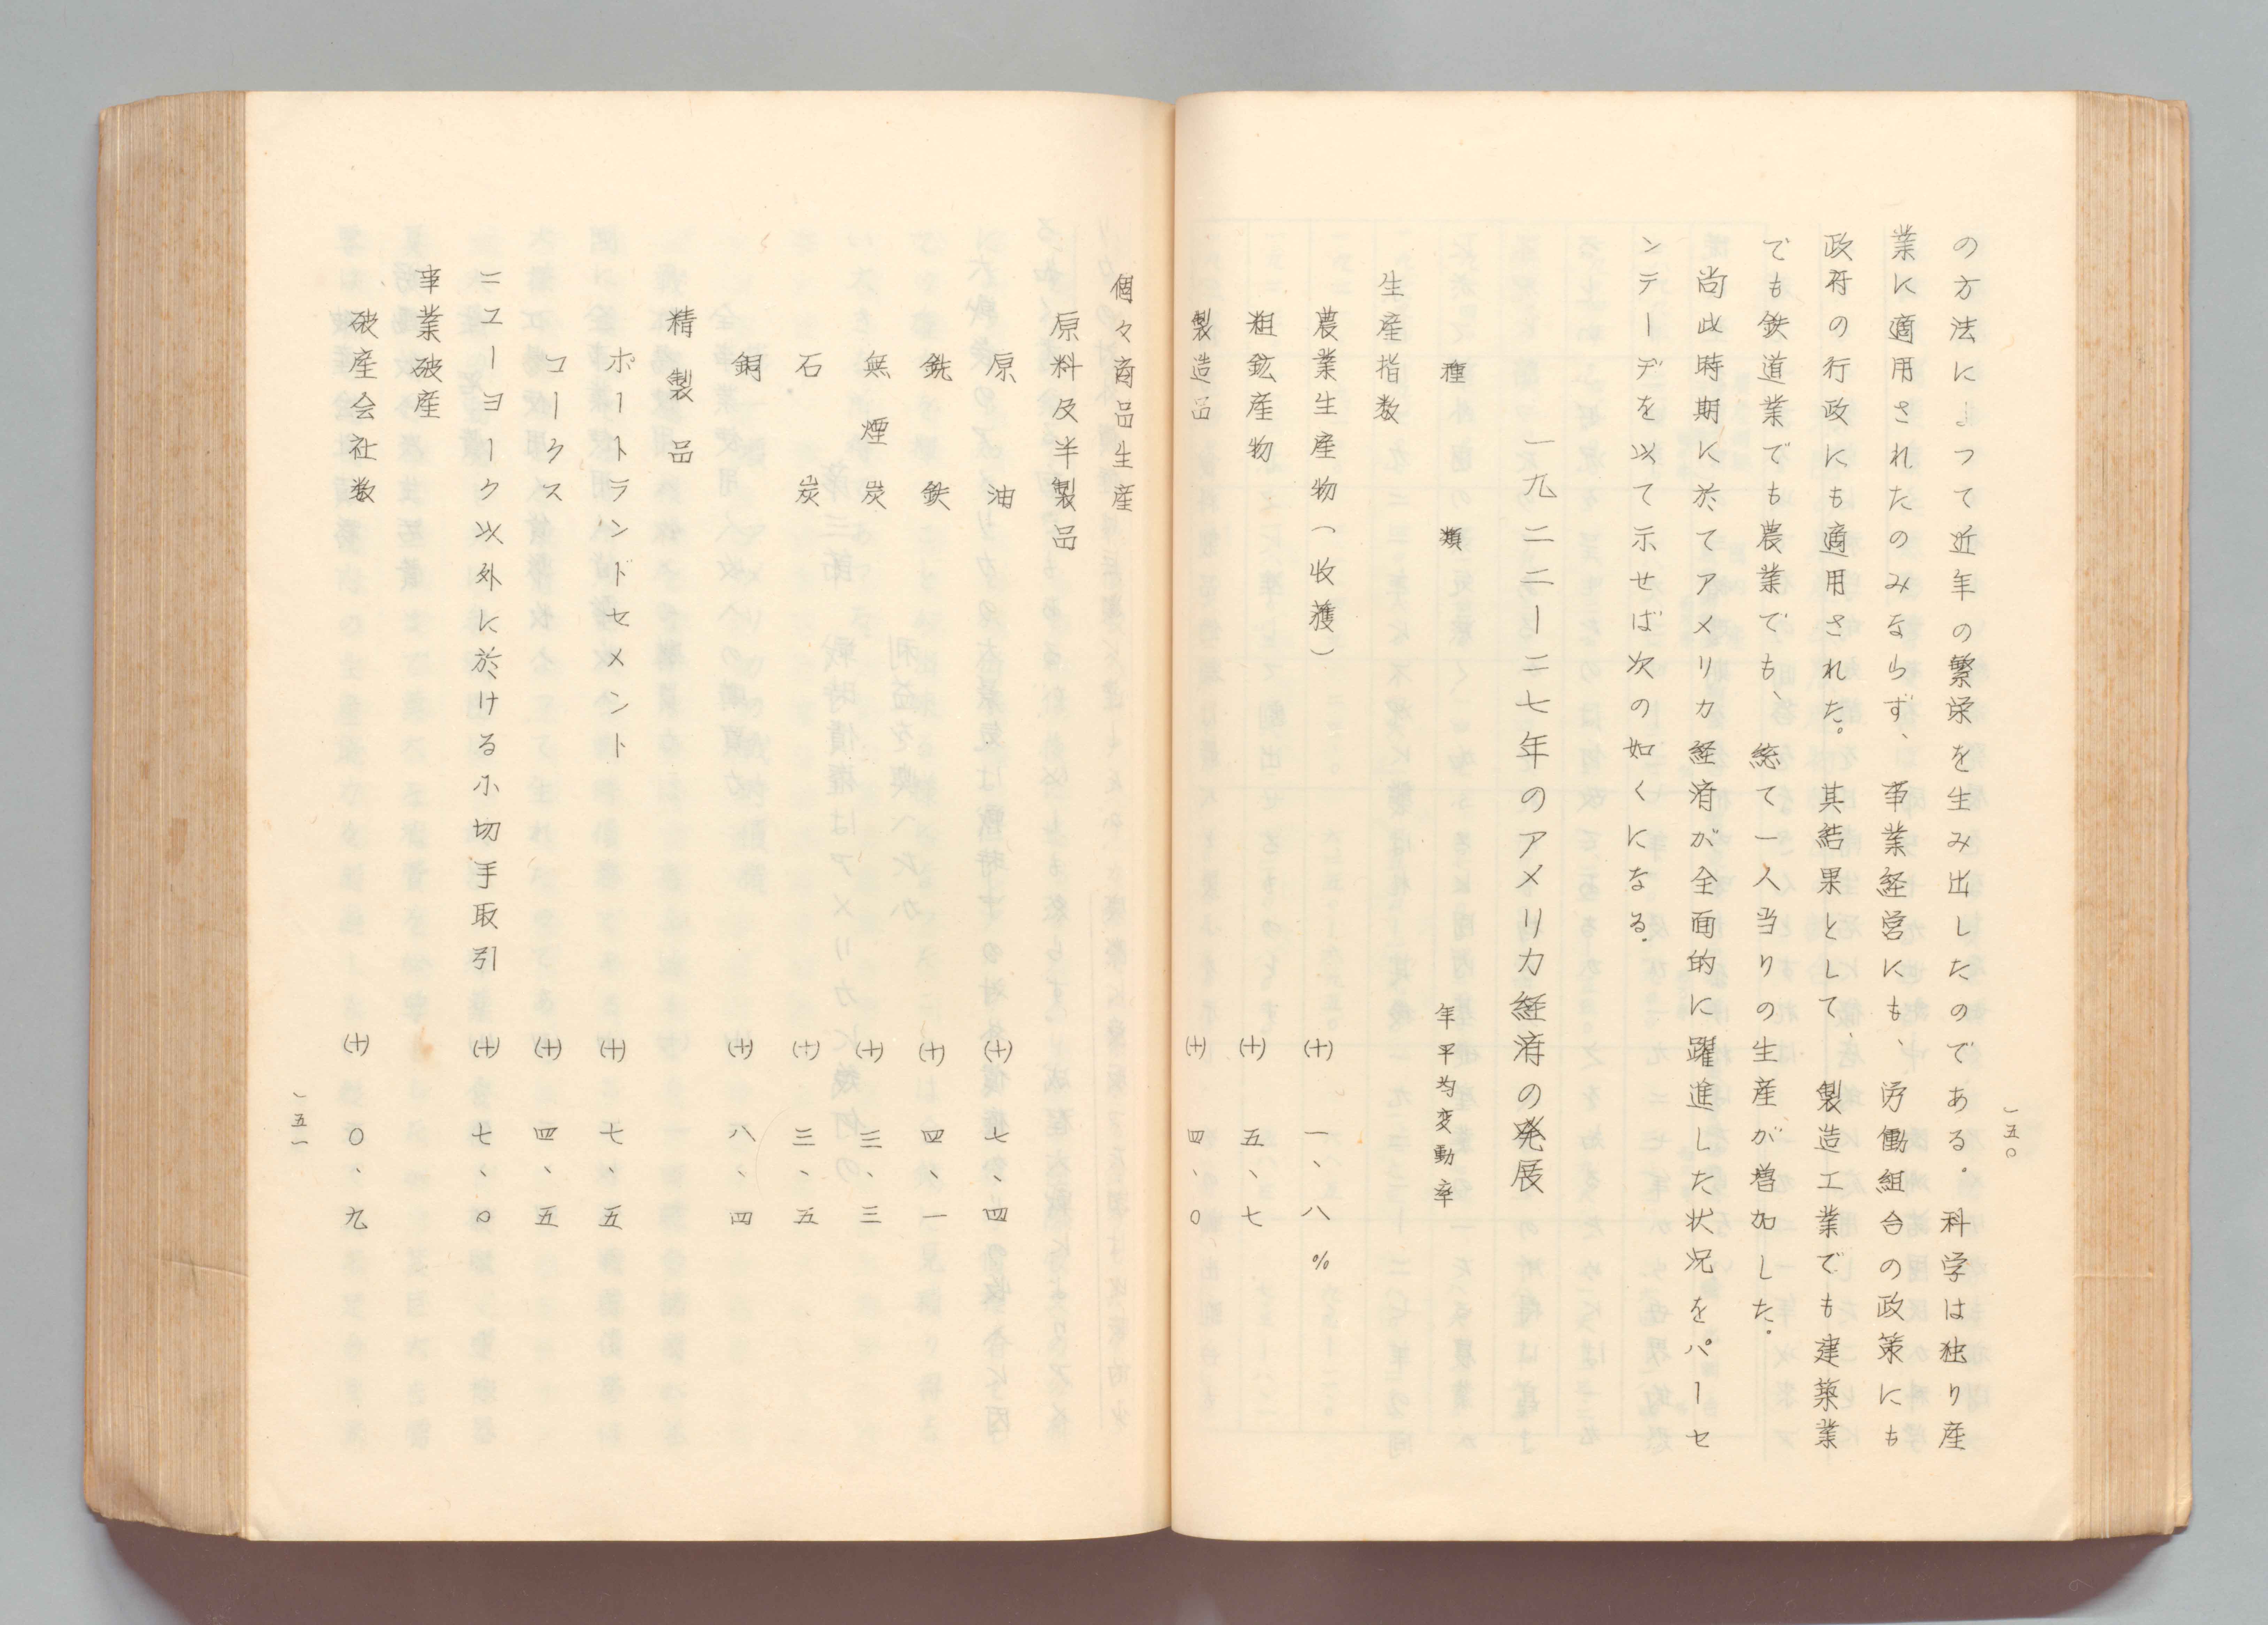 一五〇
の方法によつて近年の繁栄を生み出したのである。科学は独り産
業に適用されたのみならず、事業経営にも、労働組合の政策にも
政府の行政にも適用された。其結果として、製造工業でも建築業
でも鉄道業でも農業でも、総て一人当りの生産が増加した。
尚此時期に於てアメリカ経済が全面的に躍進した状況をパーセ
ンテーヂを以て示せば次の如くになる。
一九二二ー二七年のアメリカ経済の発展
種類 年平均変動率
生産指数
農業生産物(收獲) (十) 一、八%
粗鉱産物 (十) 五、七
製造品 (十) 四、〇
個々商品生産
原料及半製品
原油 (十) 七、四
銑鉄 (十) 四、一
無煙炭 (十) 三、三
石炭 (十) 三、五
銅 (十) 八、四
精製品
ポートランドセメント (十) 七、五
コークス (十) 四、五
ニユーヨーク以外に於ける小切手取引 (十) 七、〇
事業破産
破産会社数 (十) 〇、九
一五一